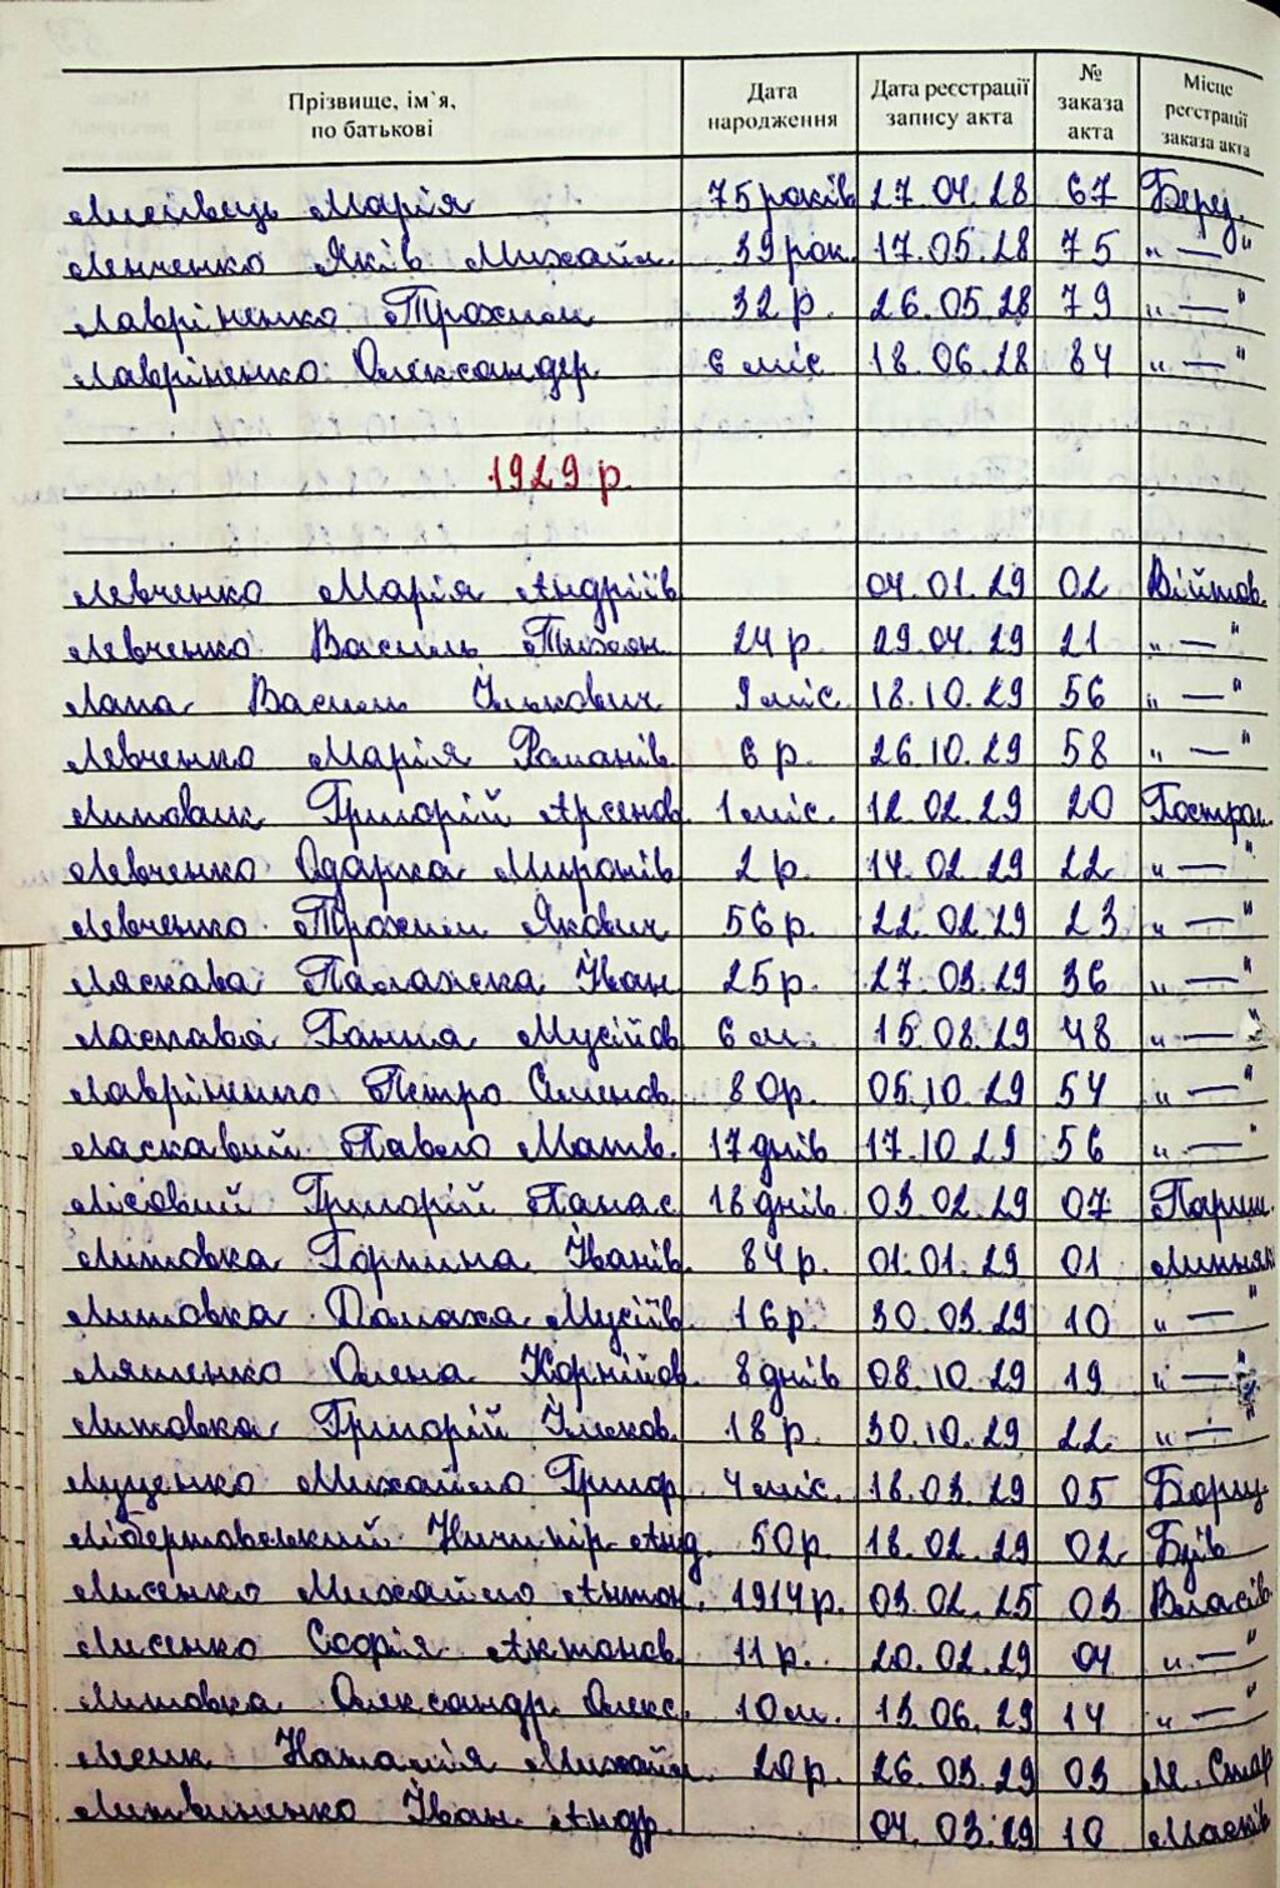 Прізвище, ім`я, по батькові Дата народження Дата реєстрації запису акта № заказа акта Місце реєстрації заказа акта
Марія 75 років 27.04.28 67 Берез.
Левченко Яків Михайл. 39 рок. 17.05.28 75 "—"
Лавріненко Трохим 32 р. 26.05.28 79 "—"
Лавріненко Олександр 6 міс 18.06.28 84 "—"
1929 р.
Левченко Марія Андріїв 04.01.29 02 Війтов.
Левченко Василь Тихон. 24 р. 29.04.29 21 "—"
Лапа Василь Ількович 9 міс. 18.10.29 56 "—"
Левченко Марія Романів. 6 р. 26.10.29 58 "—"
Григорій Арсенов. 1 міс. 12.02.29 20 Гостром.
Левченко Одарка Миронів 2 р. 14.02.29 22 "—"
Левченко Трохим Якович 56 р. 22.02.29 23 "—"
Ляскава Палажка Іван 25 р. 27.03.29 36 "—"
Ласкава Ганна Мусійов 6 м. 15.08.29 48 "—"
Лавріненко Петро Семенов. 80 р. 05.10.29 54 "—"
Ласкавий Павло Матв. 17 днів 17.10.29 56 "—"
Лісовий Григорій Панас. 18 днів 03.02.29 07 Париш.
Литовка Горпина Іванів. 84 р. 01.01.29 01 Липняк
Литовка Домаха Мусіїв. 16 р. 30.03.29 10 "—"
Ляшенко Олена Корнійов. 8 днів 08.10.29 19 "—"
Литовка Григорій Ільков. 18 р. 30.10.29 22 "—"
Луценко Михайло Григор 4 міс. 18.03.29 05 Борщ.
Лібертовський Ничипір Анд. 50 р. 18.02.29 02 Бзів
Лисенко Михайло Антон. 1914 р. 03.02.25 03 Власів.
Лисенко Софія Антонов. 11 р. 20.02.29 04 "—"
Литовка Олександр Олекс. 10 м. 13.06.29 14 "—"
Наталія Михайл. 20 р. 26.03.29 03 М. Стар
Литвиненко Іван Андр. 04.03.29 10 Масків